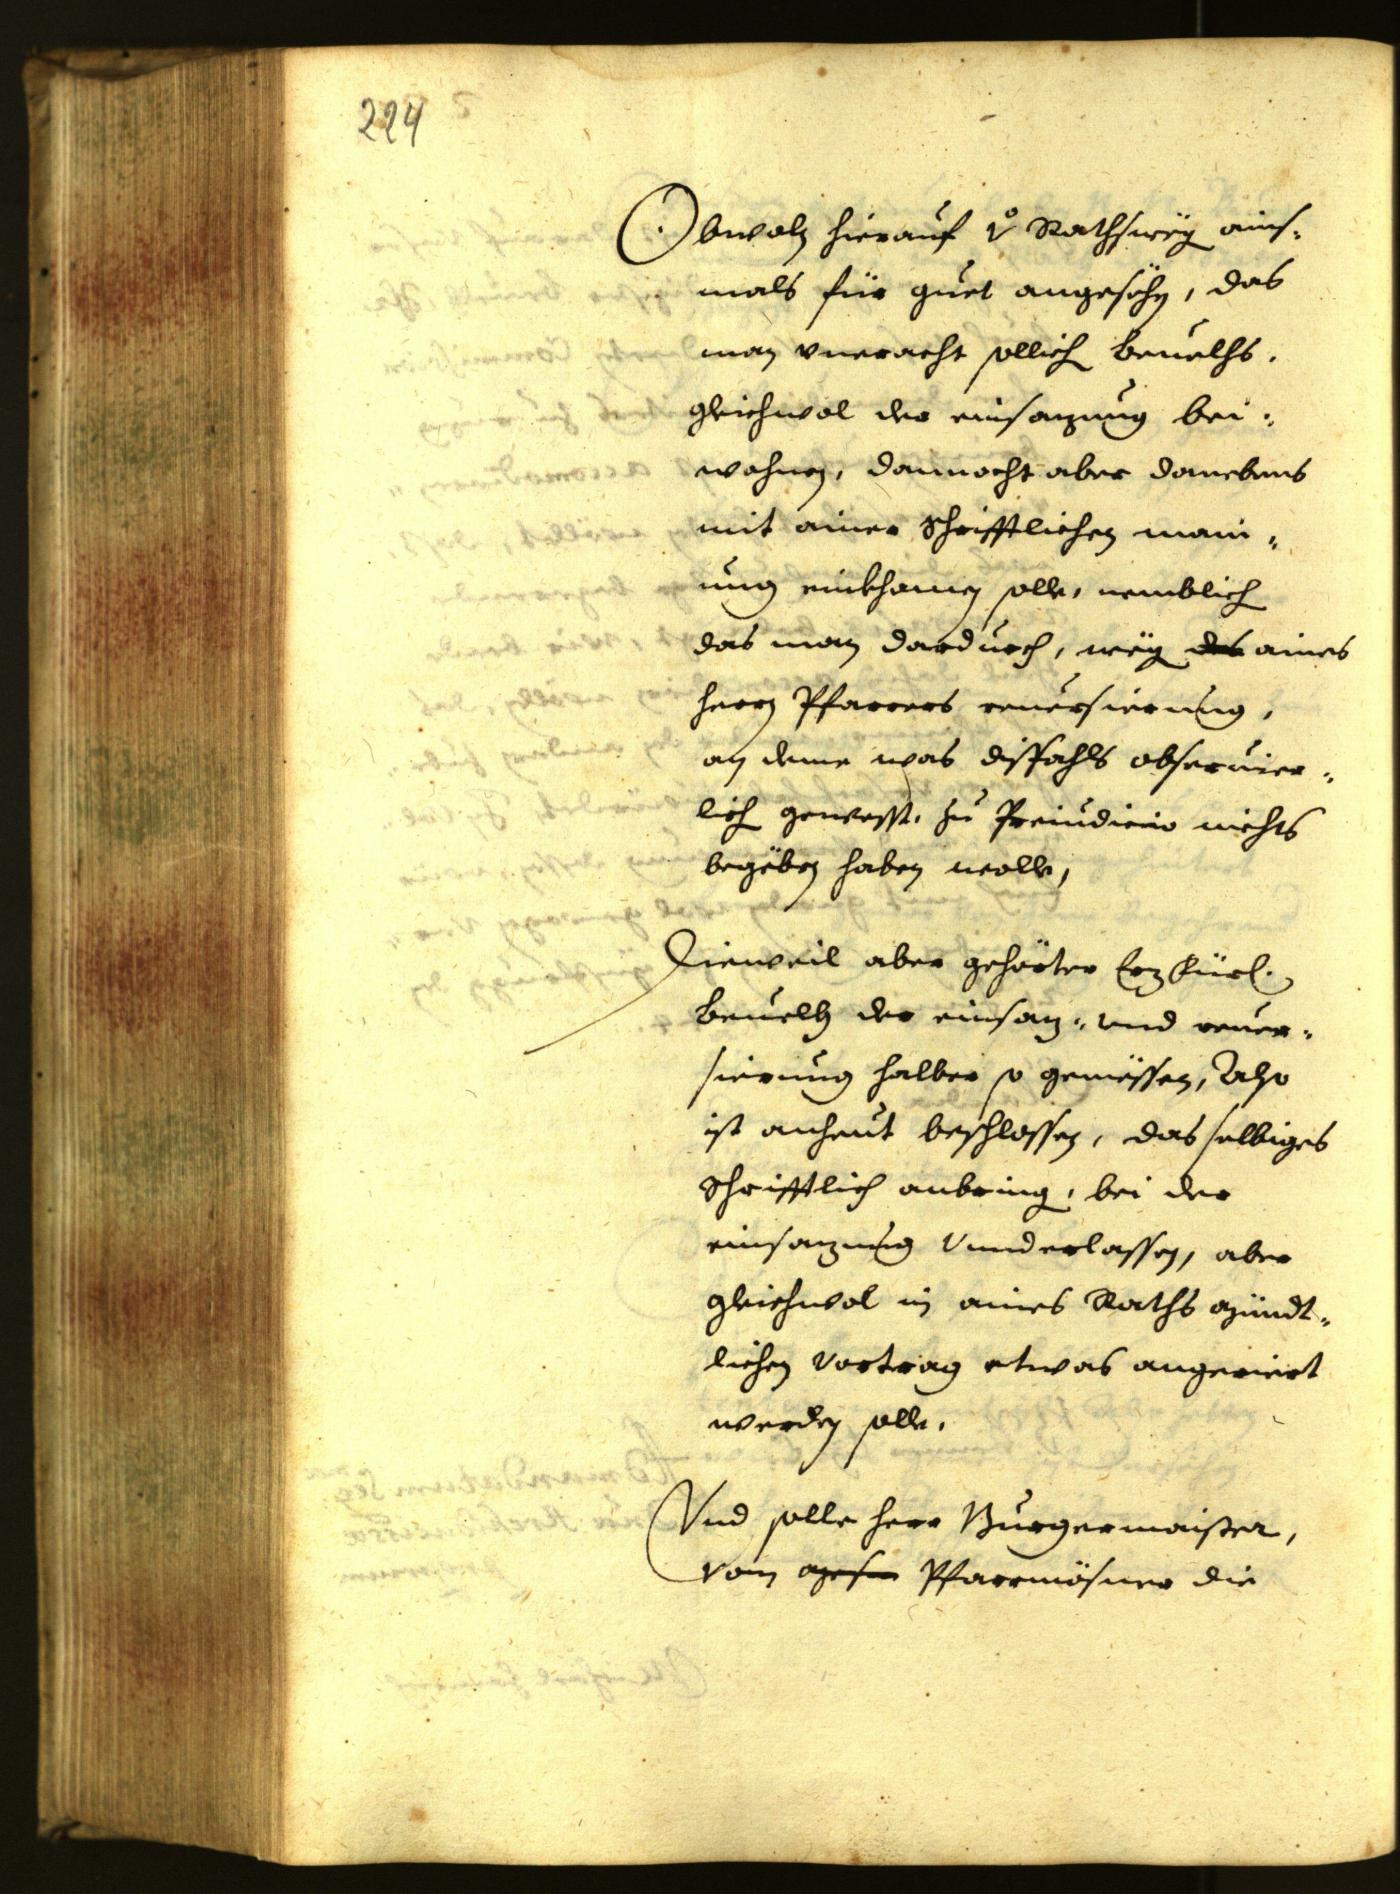 224
Obwoln hierauf vo Rathsweg̈ ains-
mals für guet angesöhn, das
man vneracht sollich beuelhs,
gleichwol der einsazung bei-
wohnen, dannocht aber danebens
mit ainer Schrifftlichen main-
ung einkhomen solle, nemblich
das man dardurch, weg̈ des aines
herrn Pfarrers reuersierung,
an deme was dissfahls obseruier-
lich gewesst, zu Preiudicio nichts
begëben haben wolle,
Dieweil aber gehörter Erz Fürl.
beuelh der einsaz- vnd reuer-
sierung halber so gemëssen, Also
ist anheut beschlossen, das selbiges
Schrifftlich anbring, bei der
einsazung Vnnderlassen, aber
gleichwol in aines Raths mündt-
lichen Vortrag etwas angeriert
werden solle.
Vnd solle herr Burgermaister,
vom Pfarrmösner die